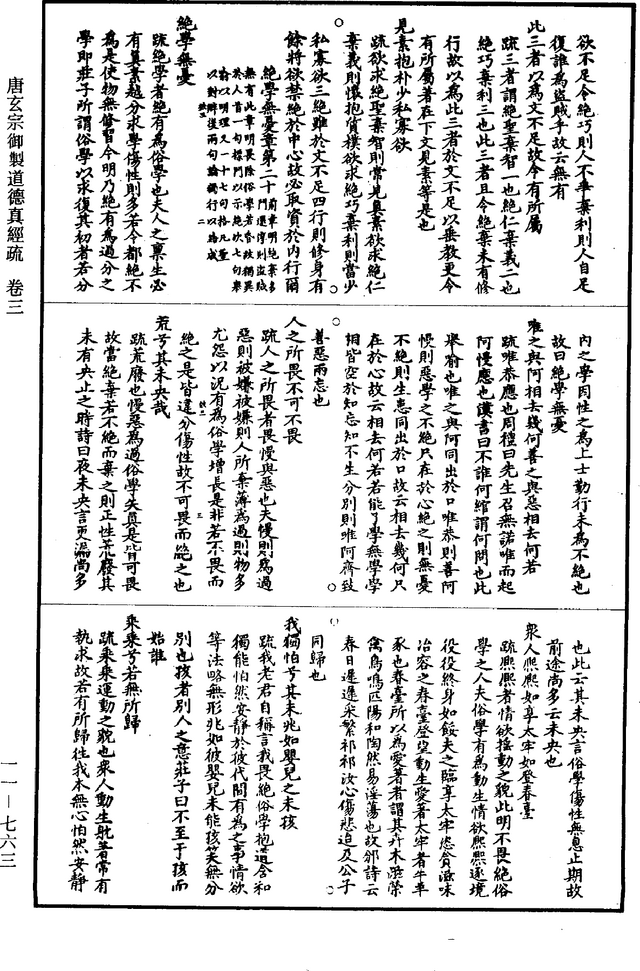 唐玄宗御製道德真經疏　卷三
欲不足令絕巧則人不爭棄利則人自足
復誰為盜賊乎故云無有
此三者以為文不足故令有所屬
疏三者謂絕聖棄智一也絕仁棄義二也
絕巧棄利三也此三者且令絕棄未有修
行故以為此三者於文不足以垂教更令
有所屬著在下文見素等是也
見素抱朴少私寡欲
疏欲求絕聖棄智則當見真素欲求絕仁
棄義則懷抱質樸欲求絕巧棄利則當少
私寡欲三絕雖於文不足四行則修身有
餘將欲禁絕於中心故必取資於內行爾
絕學無憂章第二十
絕學無憂
疏絕學者絕有為俗學也夫人之稟生必
有真素越分求學傷性則多若令都絕不
為是使物無修習今明乃絕有為過分之
學即莊子所謂俗學以求復其初者若分
內之學因性之為上士勤行未為不絕也
故曰絕學無憂
唯之與阿相去幾何善之與惡相去何若
疏唯恭應也周禮曰先生召無諾唯而起
阿慢應也漢書曰不誰何綰謂何問也此
舉喻也唯之與阿同出於口唯恭則善阿
慢則惡學之不絕只在於心絕之則無憂
不絕則生患同出於口故云相去幾何只
在於心故云相去何若若能了學無學學
相皆空於知忘知不生分別則唯阿齊致
善惡兩忘也
人之所畏不可不畏
疏人之所畏者畏慢與惡也夫慢則為過
惡則被嫌被嫌則人所棄薄為過則物多
尤怨以況有為俗學增長是非若不畏而
絕之是皆違分傷性故不可畏而絕之也
荒兮其未央哉
疏荒廢也慢惡為過俗學失真是皆可畏
故當絕棄若不絕而棄之則正性荒廢其
未有央止之時詩曰夜未央言更漏尚多
也此云其未央言俗學傷性無息止期故
前途尚多云未央也
眾人熙熙如享太牢如登春臺
疏熙熙者情欲搖動之貌此明不畏絕俗
學之人夫俗學有為動生情欲熙熙逐境
役役終身如餒夫之臨享太牢恣貪滋味
冶容之春臺登望動生愛著太牢者牛羊
豕也春臺所以為愛著者謂其卉木滋榮
禽鳥鳴匹陽和陶然易淫蕩也故邠詩云
春日遲遲采蘩祁祁汝心傷悲迨及公子
同歸也
我獨怕兮其未兆如嬰兒之未孩
疏我老君自稱言我畏絕俗學抱道含和
獨能怕然安靜於彼代間有為之事情欲
等法略無形兆如彼嬰兒未能孩笑無分
別也孩者別人之意莊子曰不至于孩而
始誰
乘乘兮若無所歸
疏乘乘運動之貌也眾人動生躭著常有
執求故若有所歸往我本無心怕然安靜
一一－七六三